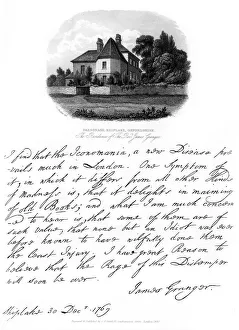 I find that the Iconomania, a new Disease pre
vails much in London. One Symptom of
it, in which it differs from all other Kinds
of Madness is, that it delights in maiming
old Books; and what I am much concern
ed to hear is, that some of them are of
such value, that none but an Idiot was ever
before known to have wilfully done them
the least Injury. I have great Reason to
believe that the Rage of this Distemper
will soon be over.
James Granger.
Shiplake 30 Decr. 1769